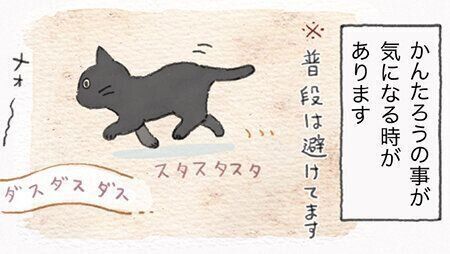 かんたろうの事が
気になる時が
あります
※普段は避けてます
スタスタスタ
メォ〜
ダスダスダス